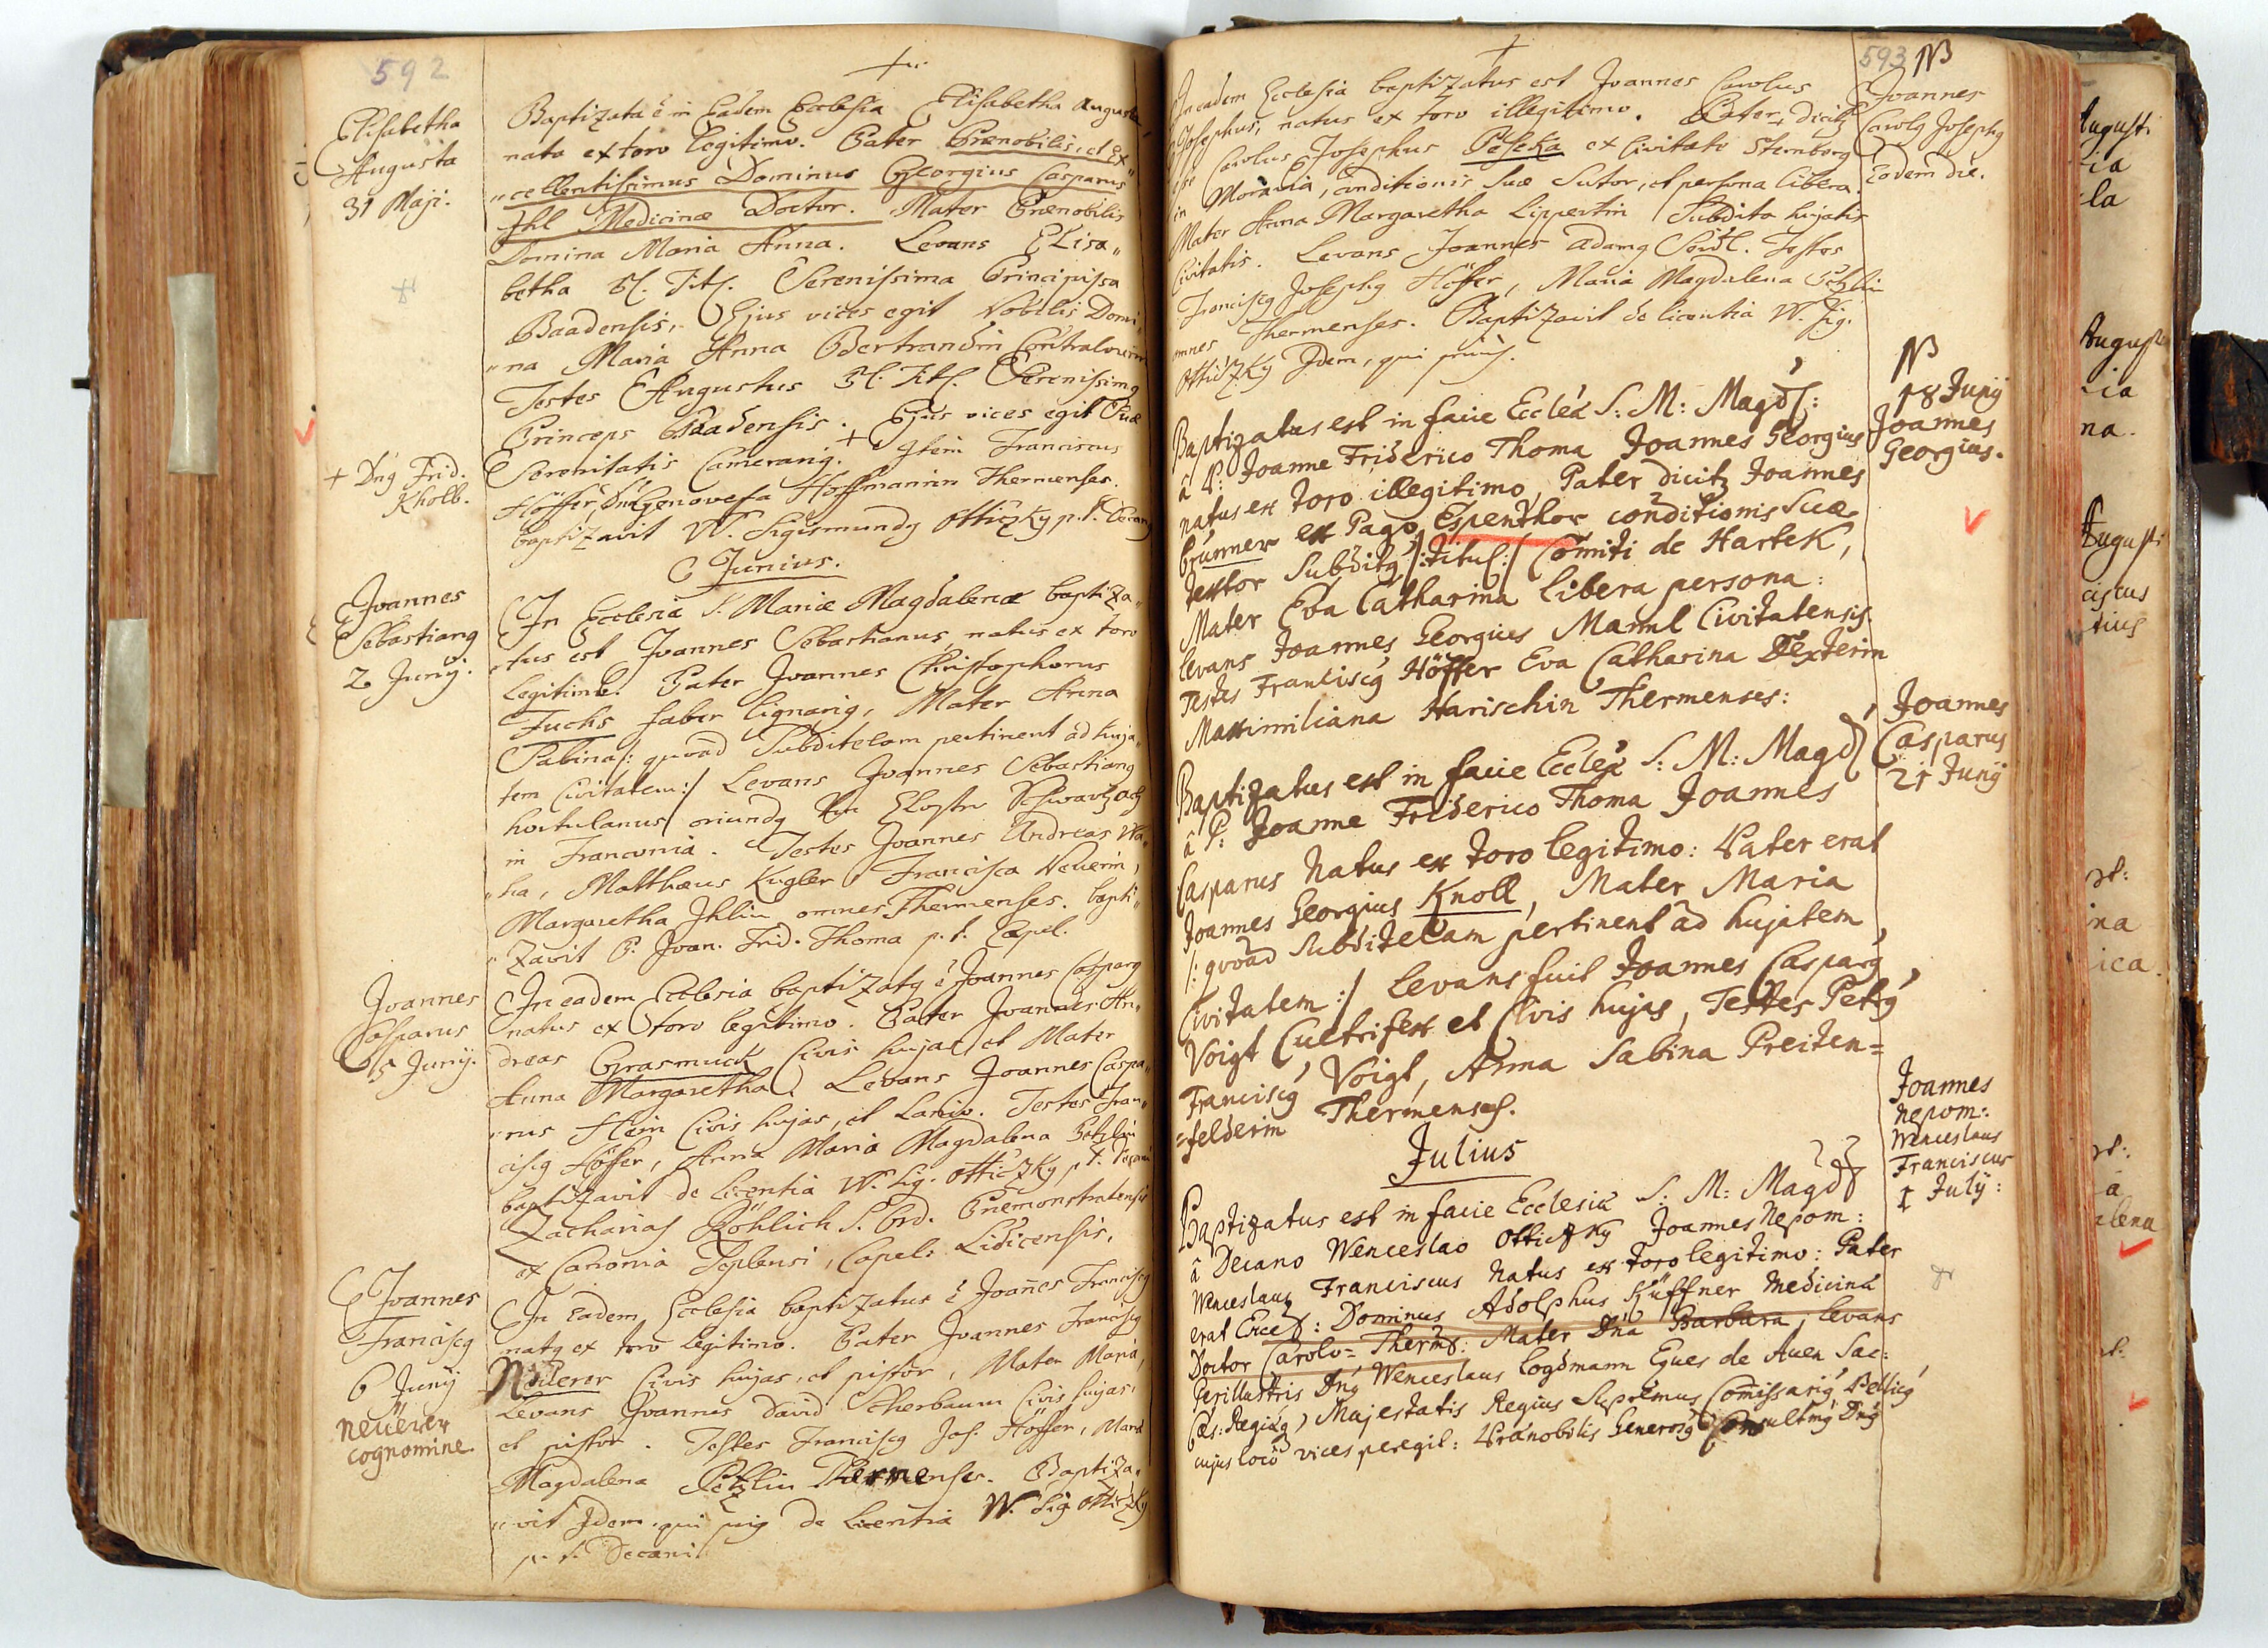 592
Elisabetha
Augusta
31 Maji.
Baptizata ē in Eadem Ecclesia Elisabetha Augusta,
nata ex toro legitimo. Pater Prænobilis, et Ex„
„cellentissimus Dominus Georgius Casparus
Ihl Medicinæ Doctor. Mater Prænobilis
Domina Maria Anna. Levans Elisa„
betha Pl. Tit. Serenissima Principissa
Baadensis, Ejus vices egit Nobilis Domi„
„na Maria Anna Bertrandin
Testes Augustus Pl. Tit. Serenissimg
Princeps Baadensis. Ejus vices egit Suæ
Serenitatis Camerarig. + Item Franciscus
+ Dng Frid.
Kholb.
Höffer, Genovefa Hoffmannin Thermenses.
baptizavit W. Sigismundg Otticzky p. t. Decang
Junius.
Joannes
Sebastiang
2 Junij.
In Ecclesia S. Mariæ Magdalenæ baptiza„
„tus est Joannes Sebastianus, natus ex toro
legitimo. Pater Joannes Christophorus
Fuchs faber lignarig, Mater Anna
Sabina /: quoad Subditelam pertinent ad huja„
tem Civitatem :/ Levans Joannes Sebastiang
hortulanus oriundg Schwartzach
in Franconia. Testes Joannes Andreas Wa„
„ha, Matthæus Kugler, Francisca Neuerin,
Margaretha Ihlin omnes Thermenses. bapti„
„zavit P. Joan. Frid. Thoma p. t. Capel.
Joannes
Casparus
5 Junij.
In eadem Ecclesia baptizatg ē Joannes Casparg
natus ex toro legitimo. Pater Joannes An„
dreas Grasmuck Civis hujas, et Mater
Anna Margaretha. Levans Joannes Caspa„
„rus Hein Civis hujas, et Lanio. Testes Fran„
ciscg Höffer, Anna Maria Magdalena Petzlin
baptizavit de licentia W. Sig. Otticzky p. t. Decani
Zacharias Röhlich S. Ord. Præmonstratensis
ex Canonia Teplensi, Capel: Lidicensis.
Joannes
Franciscg
6 Junij
neüerer
cognomine.
In eadem Ecclesia baptizatus ē Joañes Franciscg
natg ex toro legitimo. Pater Joannes Franciscg
Neüerer Civis hujas, et pistor, Mater Maria,
Levans Joannes David Scherbaum Civis hujas,
et pistor. Testes Franciscg Jos. Höffer, Maria
Magdalena Petzlin Thermenses. Baptiza„
„vit Idem, qui prig de Licentia W. Sig. Otticzky
p. t. Decani.
593 NB
In eadem Ecclesia baptizatus est Joannes Carolus
Josephus, natus ex toro illegitimo. Pater dicitg
esse Carolus Josephus Peseka ex Civitate Sternberg
in Moravia, conditionis suæ Sutor, et persona libera.
Mater Anna Margaretha Lippertin Subdita hujatis
Civitatis. Levans Joannes Adamg Testes
Franciscg Josephg Höffer, Maria Magdalena Petzlin
omnes Thermenses. Baptizavit de licentia W. Sig.
Otticzky Idem, qui priùs.
Joannes
Carolg Josephg
Eadem die.
NB
18 Junij
Joannes
Georgius.
Baptizatus est in facie Eccleæ S: M: Magd:
â P: Joanne Friderico Thoma Joannes Georgius
natus ex toro illegitimo, Pater dicitg Joannes
brünner ex Pago Espenthor conditionis Suæ
textor Subditg /: titul: / Comiti de Hartek,
Mater Eva Catharina libera persona:
levans Joannes Georgius Mannl Civitatensis.
Testes Franciscg Höffer Eva Catharina Dexterin
Maximiliana Harischin Thermenses:
Joannes
Casparus
21 Junij
Baptizatus est in facie Eccleæ S: M: Magd
â P: Joanne Friderico Thoma Joannes
Casparus Natus ex toro legitimo: Pater erat
Joannes Georgius Knoll, Mater Maria
/: quoad Subditelam pertinent ad hujatem
Civitatem :/ Levans fuit Joannes Casparg
Voigt Cultrifex et Civis hujas, Testes Petrg
Franciscg Voigt, Anna Sabina Preiten=
=felderin Thermenses.
Julius
Joannes
Nepom:
Wenceslaus
Franciscus
1 July:
Baptizatus est in facie Ecclesiæ S: M: Magd
â Decano Wenceslao Otticzky Joannes Nepom:
Wenceslaus Franciscus Natus ex toro legitimo: Pater
erat Excel: Dominus Adolphus Küffner Medicinæ
Doctor Carolo=Therms: Mater Dña Barbara, levans
Perillustris Dng Wenceslaus Cogsmann Eques de Auen Sac:
Cæs: Regiæg Majestatis Regius Supremus Comissarig Bellicg
cujus loco vices peregit: Prænobilis Generosg Consultmg Dng